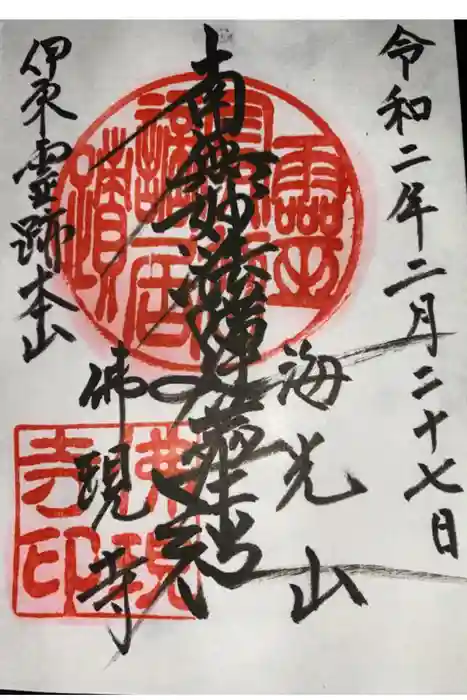 令和二年二月二十七日
海光山
南無妙法蓮華経
佛現寺
伊東霊跡本山
佛現
寺印